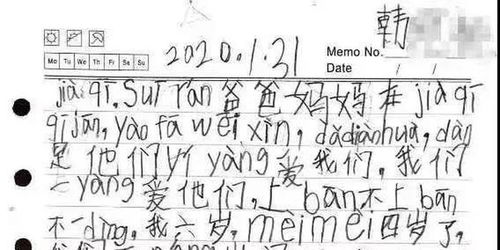 韩
2020.1.31
Memo No.
Mo Tu We Th Fr Sa Su
Date / /
jià qī. Suī rán 爸爸妈妈在 jià qī
qī jiān, yào fā wēi xìn, dǎ diàn huà, dàn
是他们 yàng 爱我们, 我们
一 yàng 爱他们, 上 bān 不上 bān
不一 dìng, 我六岁, mèi mei 四岁了,